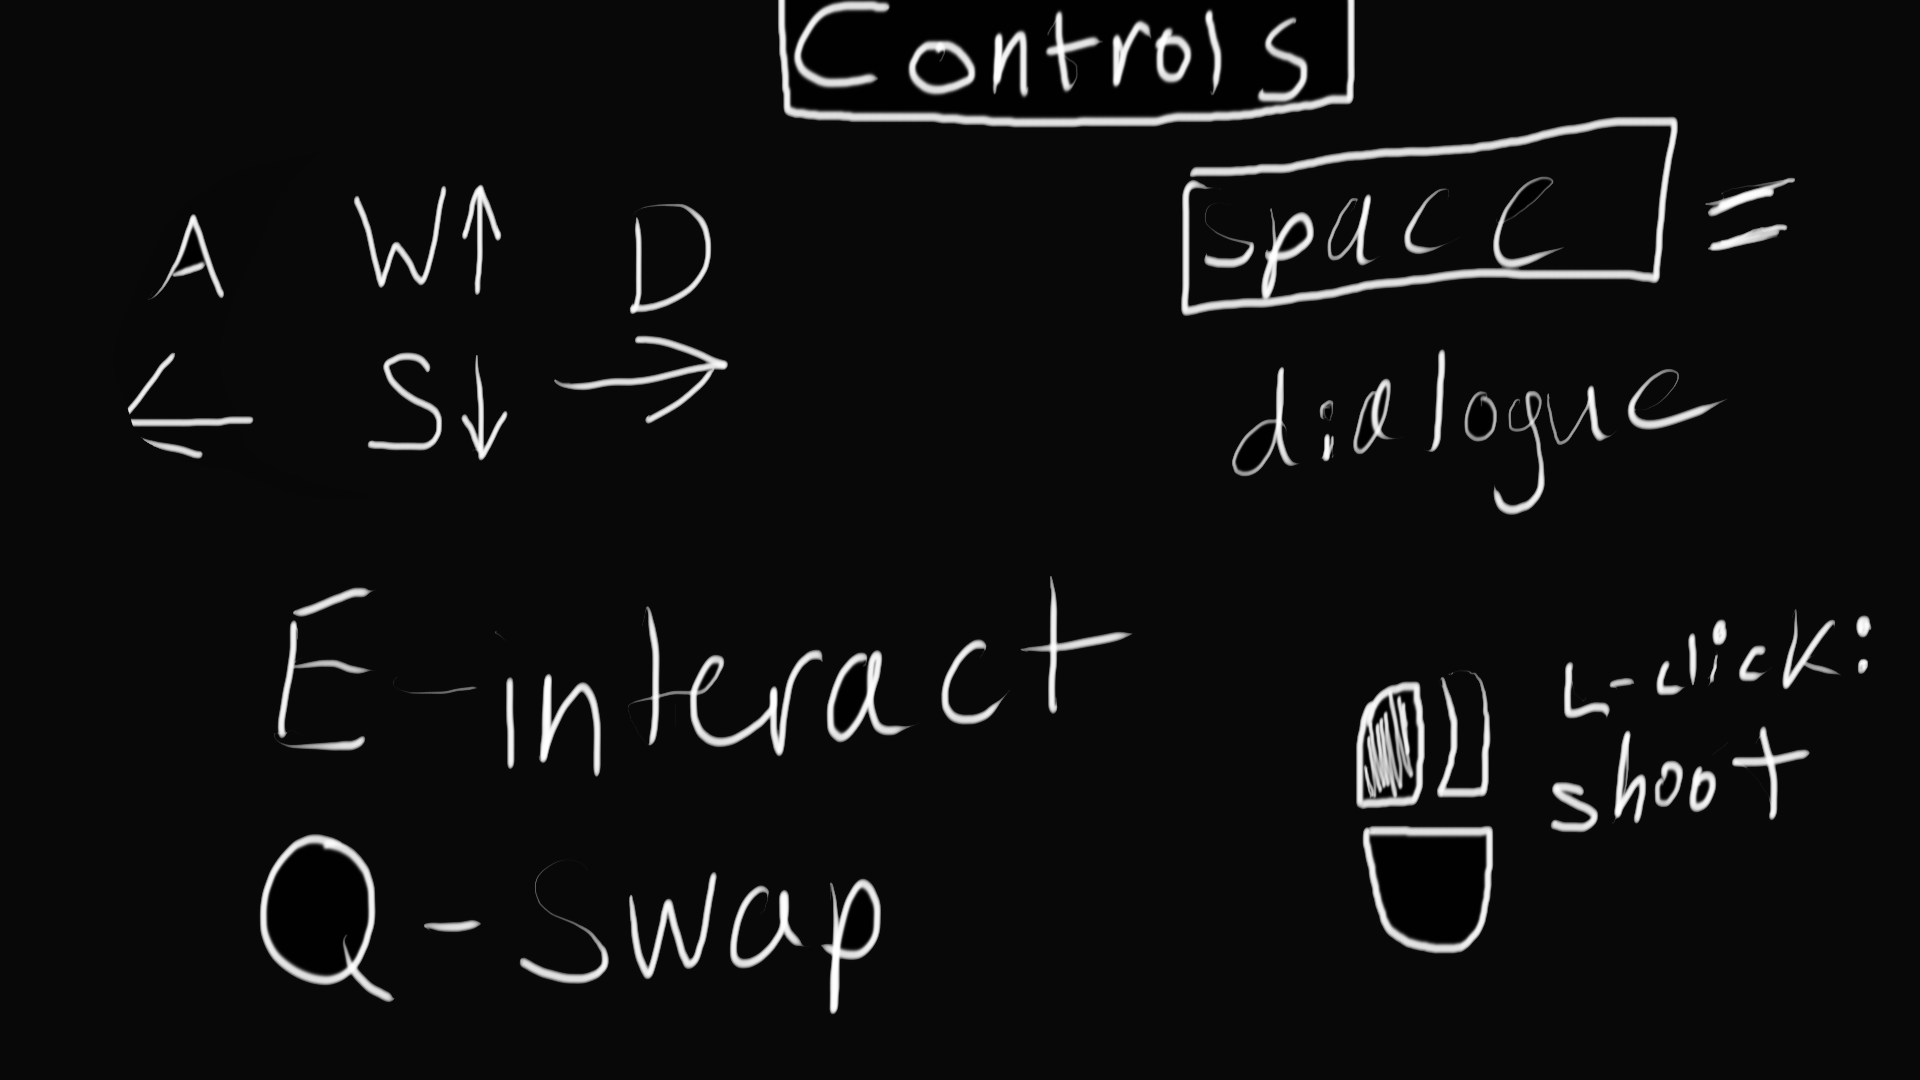 Controls
A W↑ D
← S↓ →
space =
dialogue
E-interact
L-click:
shoot
Q-swap